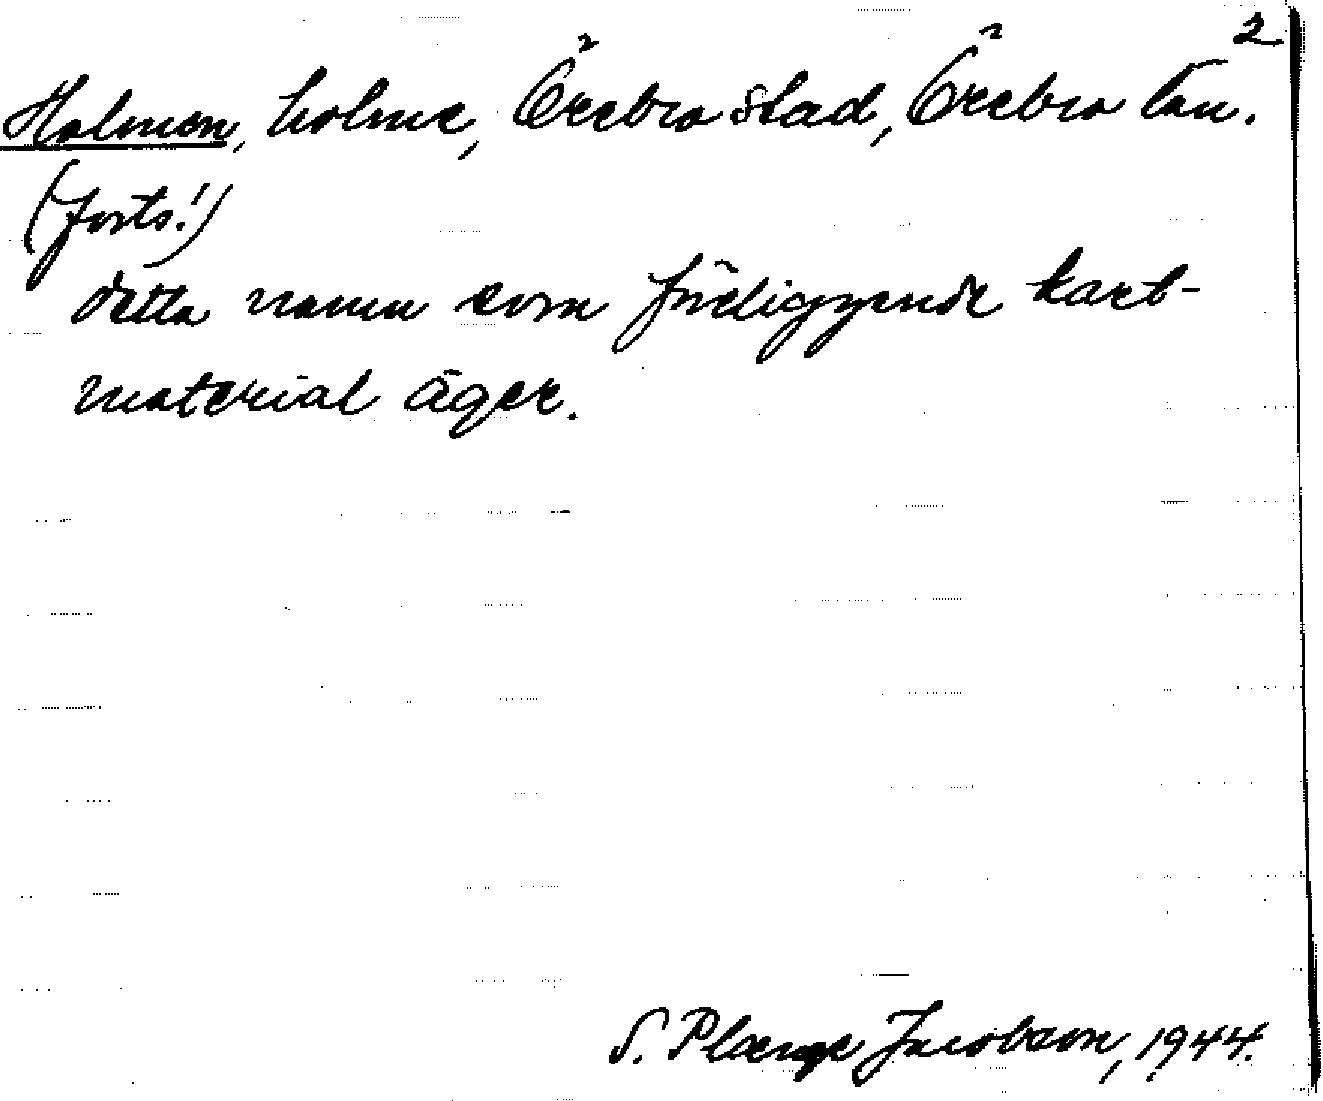 2
Holmen, holme, Örebro stad, Örebro län.
(forts!)
detta namn som föreliggande kart-
material äger.
S. Plænge Jacobson, 1944.